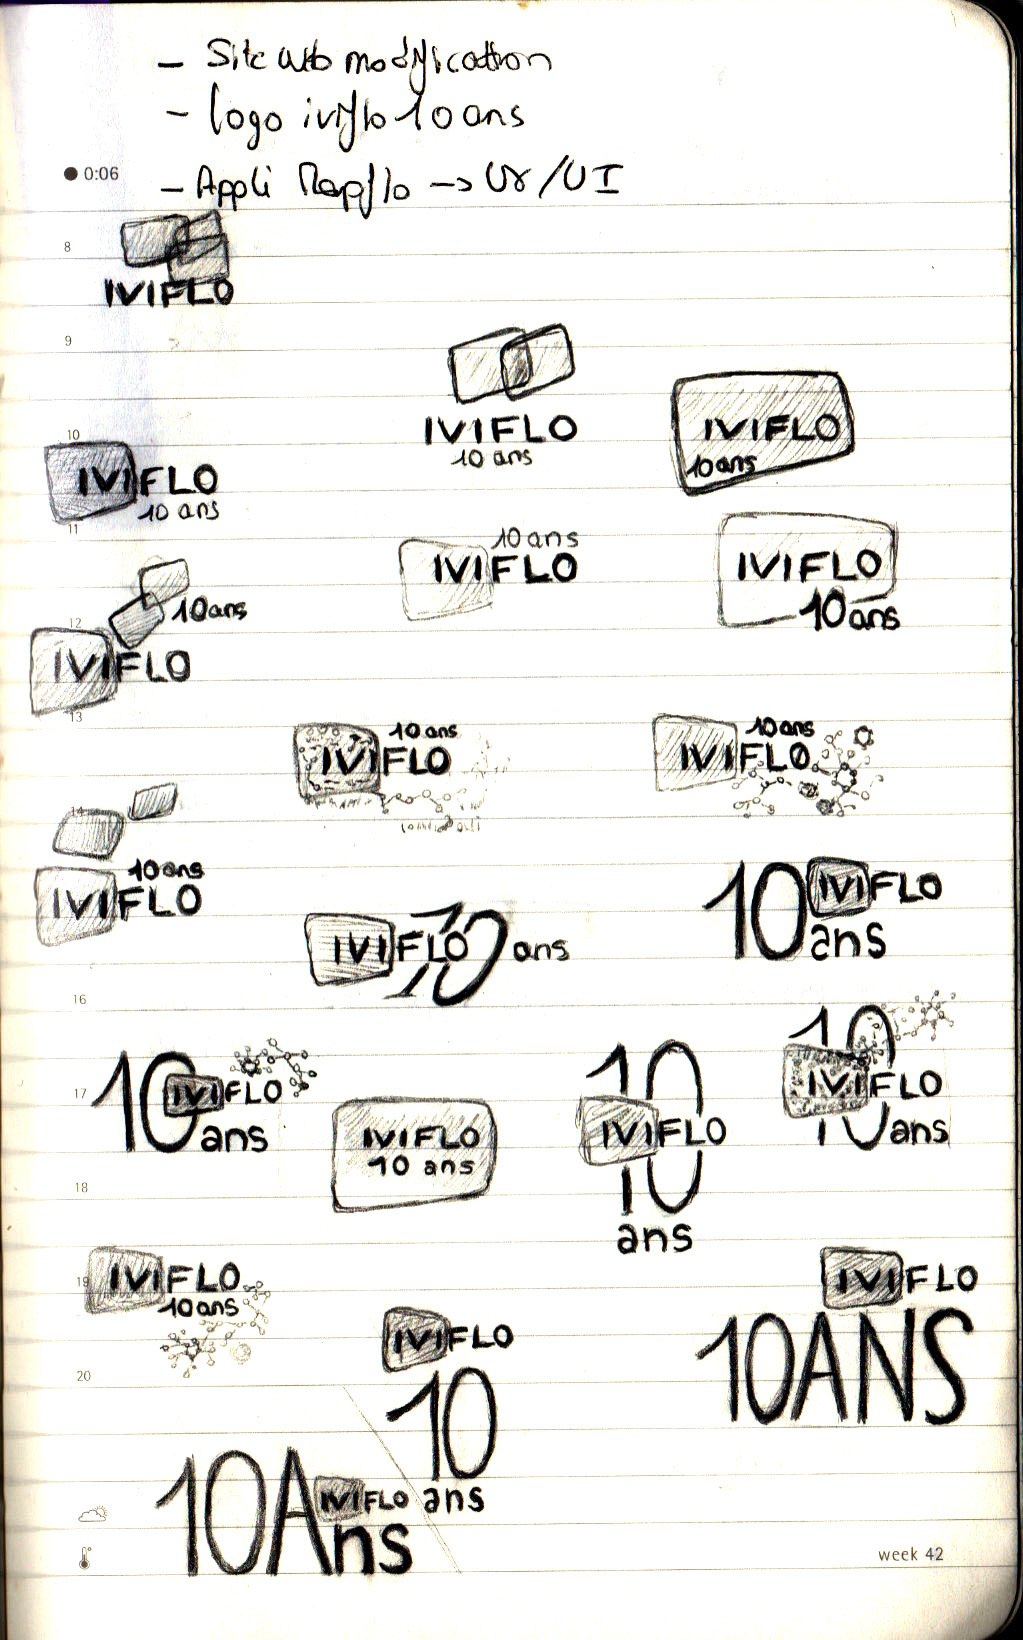 - Site web modification
- logo iviflo 10 ans
0:06
- Appli Mapflo -> UX/UI
8
IVIFLO
9
IVIFLO
10 ans
IVIFLO
10 ans
10
IVIFLO
10 ans
11
10 ans
IVIFLO
IVIFLO
10 ans
10 ans
12
IVIFLO
13
10 ans
IVIFLO
10 ans
IVIFLO
14
10 ans
IVIFLO
10 IVIFLO
ans
IVIFLO 10 ans
16
10
IVIFLO
ans
17
10 IVIFLO
ans
IVIFLO
10 ans
10
IVIFLO
ans
18
19
IVIFLO
10 ans
IVIFLO
10
ans
IVIFLO
10ANS
20
10Ans
IVIFLO
week 42